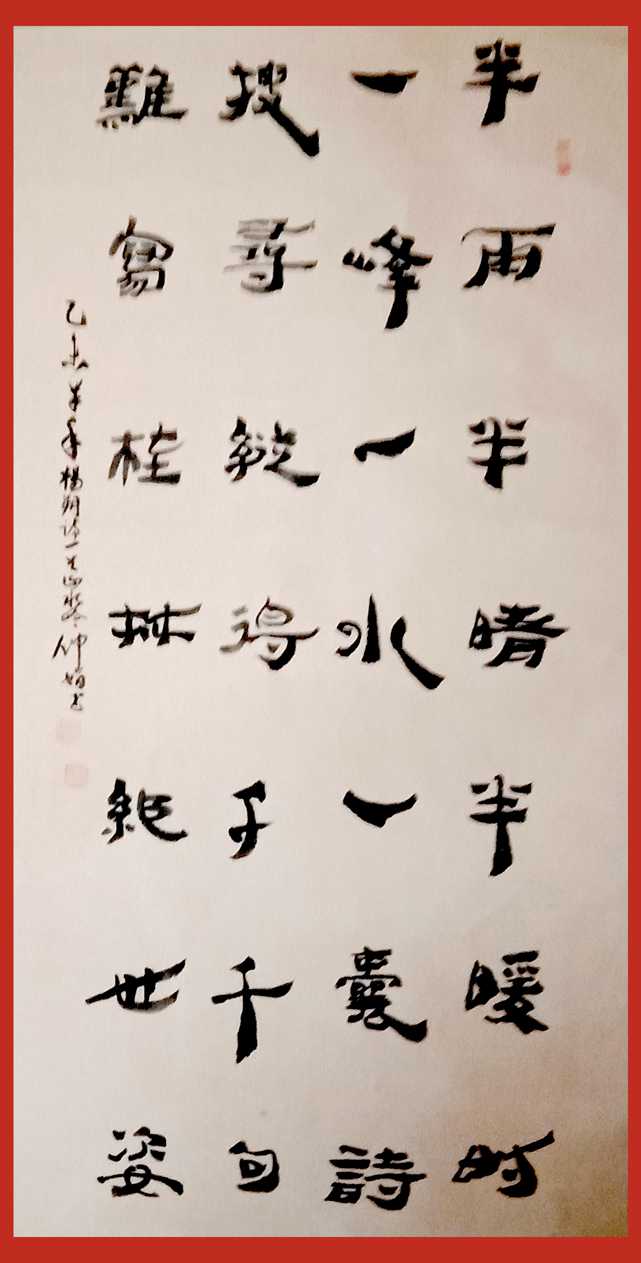 半雨半晴半暖时
一峰一水一囊詩
搜尋縱得千千句
難寫桂林絕世姿
乙未羊年楊朔詩一首